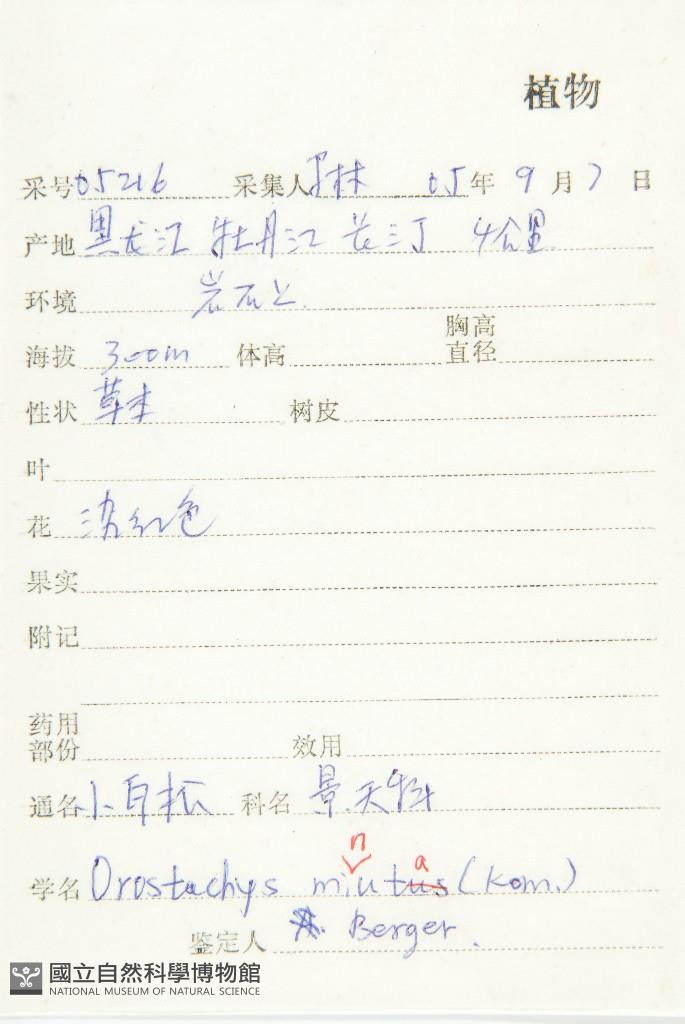 植物
采号 05216 采集人 林 05 年 9 月 7 日
产地 黑龙江 牡丹江 三丁 4公里
环境 岩石上.
海拔 300m 体高 胸高直径
性状 草本 树皮
叶
花 淡红色
果实
附记
药用部份 效用
通名 小瓦松 科名 景天科
n a
学名 Orostachys miutus (Kom.)
鉴定人 A. Berger.
國立自然科學博物館
NATIONAL MUSEUM OF NATURAL SCIENCE